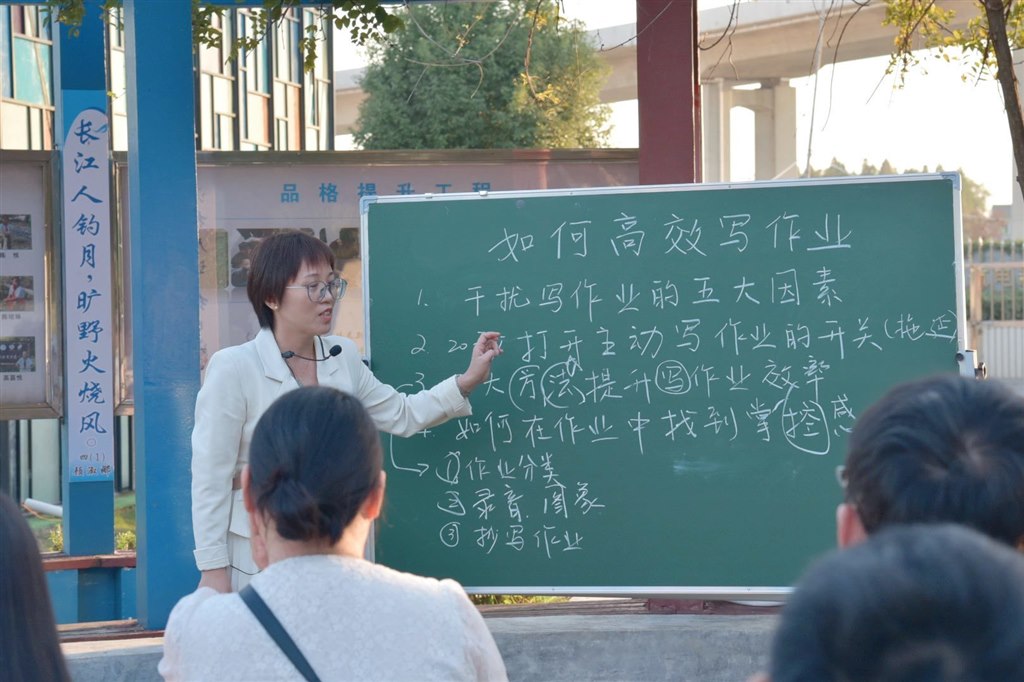 长江人钓月，旷野火烧风。
四(1)
品格提升工程
如何高效写作业
1. 干扰写作业的五大因素
2. 20 打开主动写作业的开关(拖延)
3 大方法提升写作业效率
4. 如何在作业中找到掌控感
①作业分类
②录音 图象
③抄写作业